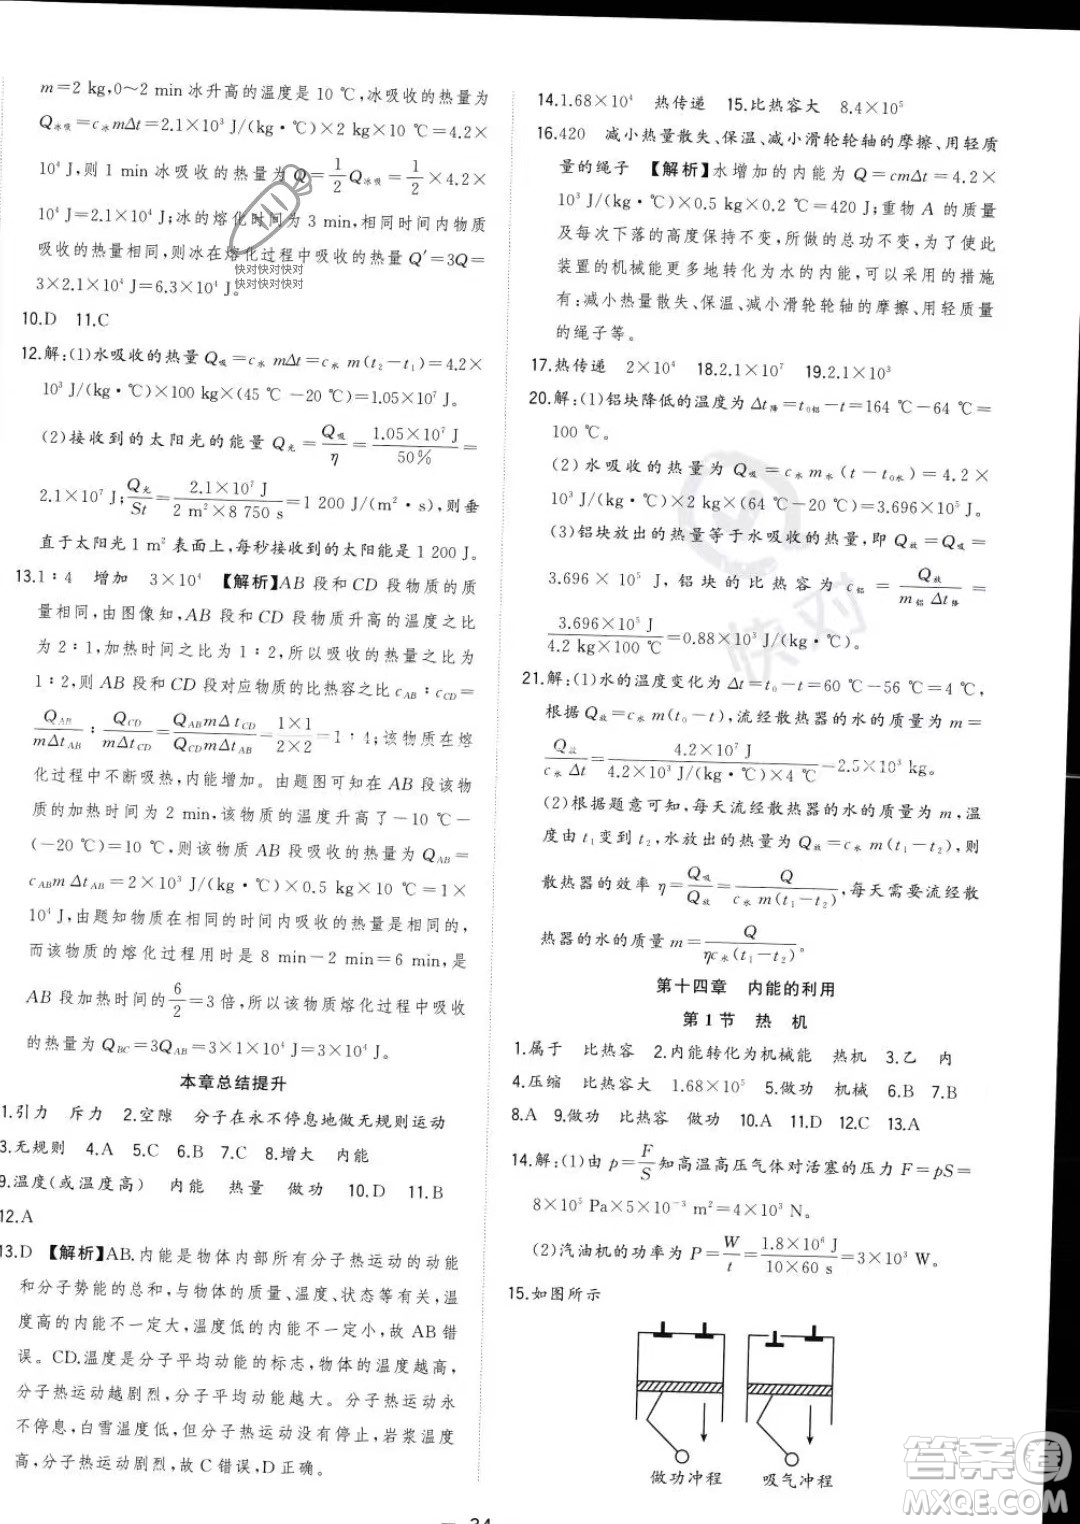 m=2 kg,0～2 min 冰升高的温度是 10 ℃,冰吸收的热量为
Q冰吸=c冰mΔt=2.1×10³ J/(kg·℃)×2 kg×10 ℃=4.2×
10⁴ J,则 1 min 冰吸收的热量为 Q=1/2Q冰吸=1/2×4.2×
10⁴ J=2.1×10⁴ J,冰的熔化时间为 3 min,相同时间内物质
吸收的热量相同,则冰在熔化过程中吸收的热量 Q′=3Q=
3×2.1×10⁴ J=6.3×10⁴ J。
快对快对快对
快对快对快对
10.D 11.C
12.解:(1)水吸收的热量 Q吸=c水 mΔt=c水 m(t₂-t₁)=4.2×
10³ J/(kg·℃)×100 kg×(45 ℃-20 ℃)=1.05×10⁷ J。
(2)接收到的太阳光的能量 Q光=Q吸/η=1.05×10⁷ J/50%=
2.1×10⁷ J;Q光/St=2.1×10⁷ J/2 m²×8 750 s=1 200 J/(m²·s),则垂
直于太阳光 1 m² 表面上,每秒接收到的太阳能量为 1 200 J。
13.1∶4 增加 3×10⁴ 【解析】AB 段和 CD 段物质的质
量相同,由图像知,AB 段和 CD 段物质升高的温度之比
为 2∶1,加热时间之比为 1∶2,所以吸收的热量之比为
1∶2,则 AB 段和 CD 段对应物质的比热容之比 cAB∶cCD=
QAB/mΔtAB∶QCD/mΔtCD=QABmΔtCD/QCDmΔtAB=1×1/2×2=1∶4;该物质在熔
化过程中不断吸热,内能增加。由题图可知,AB 段物
质的加热时间为 2 min,该物质的温度升高了-10 ℃-
(-20 ℃)=10 ℃,则该物质 AB 段吸收的热量 QAB=
cABmΔtAB=2×10³ J/(kg·℃)×0.5 kg×10 ℃=1×
10⁴ J,由题知物质在相同的时间内吸收的热量是相同的,
而该物质的熔化过程用时是 8 min-2 min=6 min,是
AB 段加热时间的6/2=3 倍,所以该物质熔化过程中吸收
的热量为 QBC=3QAB=3×1×10⁴ J=3×10⁴ J。
本章总结提升
1.引力 斥力 2.空隙 分子在永不停息地做无规则运动
3.无规则 4.A 5.C 6.B 7.C 8.增大 内能
9.温度(或温度高) 内能 热量 做功 10.D 11.B
12.A
13.D 【解析】AB.内能是物体内部所有分子热运动的动能
和分子势能的总和,与物体的质量、温度、状态等有关,温
度高的内能不一定大,温度低的内能不一定小,故 AB 错
误。CD.温度是分子平均动能的标志,物体的温度越高,
分子热运动越剧烈,分子平均动能越大。分子热运动永
不停息,白雪温度低,分子热运动不会停止,岩浆温度
高,分子热运动更剧烈,故 C 错误,D 正确。
14.1.68×10⁴ 热传递 15.比热容大 8.4×10⁵
16.420 减小热量散失、保温、减小滑轮轮轴的摩擦、用轻质
量的绳子 【解析】水增加的内能为 Q=cmΔt=4.2×
10³ J/(kg·℃)×0.5 kg×0.2 ℃=420 J;重物 A 的质量
及每次下落的高度保持不变,所做的总功不变,为了使此
装置的机械能更多地转化为水的内能,可采用的措施
有:减小热量散失、保温、减小滑轮轮轴的摩擦、用轻质量
的绳子等。
17.热传递 2×10⁴ 18.2.1×10⁷ 19.2.1×10³
20.解:(1)铝块降低的温度为 Δt降=t₀铝-t=164 ℃-64 ℃=
100 ℃。
(2)水吸收的热量为 Q吸=c水 m水(t-t₀水)=4.2×
10³ J/(kg·℃)×2 kg×(64 ℃-20 ℃)=3.696×10⁵ J。
(3)铝块放出的热量等于水吸收的热量,即 Q放=Q吸=
3.696×10⁵ J,铝块的比热容为 c铝=Q放/m铝 Δt降=
3.696×10⁵ J/4.2 kg×100 ℃=0.88×10³ J/(kg·℃)。
21.解:(1)水的温度变化为 Δt=t₀-t=60 ℃-56 ℃=4 ℃,
根据 Q放=c水 m(t₀-t),流经散热器的水的质量为 m=
Q放/c水 Δt=4.2×10⁷ J/4.2×10³ J/(kg·℃)×4 ℃=2.5×10³ kg。
(2)根据题意可知,每天流经散热器的水的质量为 m,温
度由 t₁变到 t₂,水放出的热量为 Q放=c水 m(t₁-t₂),则
散热器的效率 η=Q吸/Q放=Q/c水 m(t₁-t₂),每天需要流经散
热器的水的质量 m=Q/ηc水(t₁-t₂)。
第十四章 内能的利用
第 1 节 热 机
1.属于 比热容 2.内能转化为机械能 热机 3.乙 内
4.压缩 比热容大 1.68×10⁵ 5.做功 机械 6.B 7.B
8.A 9.做功 比热容 做功 10.A 11.D 12.C 13.A
14.解:(1)由 p=F/S知高温高压气体对活塞的压力 F=pS=
8×10⁵ Pa×5×10⁻³ m²=4×10³ N。
(2)汽油机的功率为 P=W/t=1.8×10⁶ J/10×60 s=3×10³ W。
15.如图所示
做功冲程 吸气冲程
34
快对
答案圈
MXQE.COM